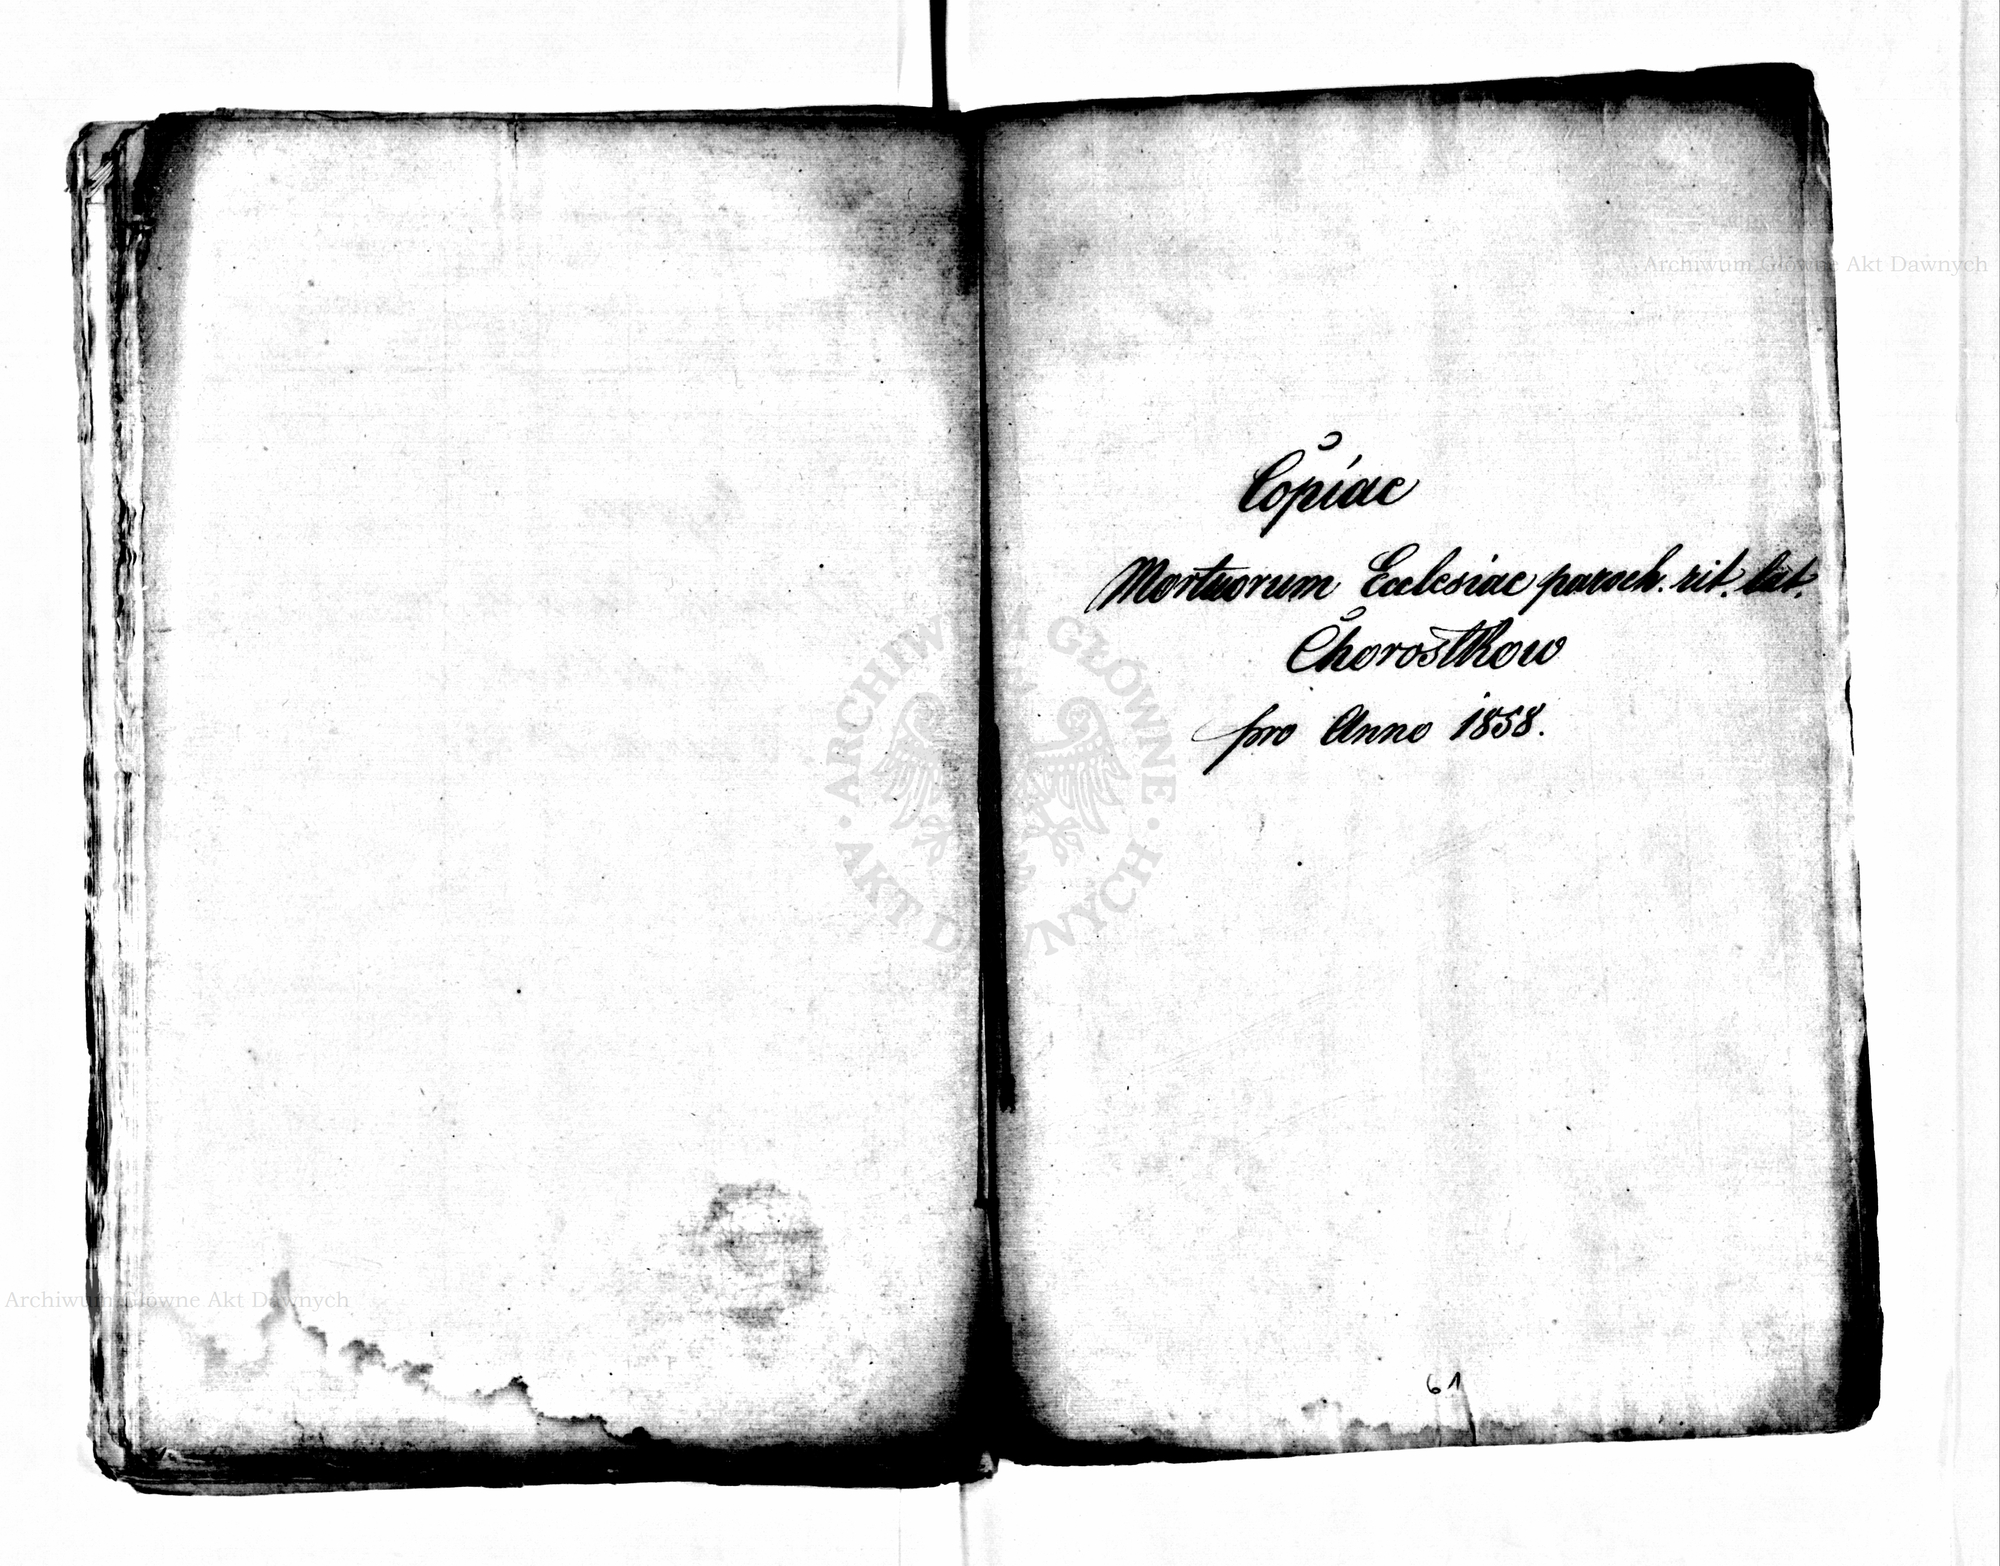 Copiae
Mortuorum Ecclesiae paroch. rit. lat.
Chorostkow
pro Anno 1858.
61
Archiwum Główne Akt Dawnych
ARCHIWUM GŁÓWNE
AKT DAWNYCH
Archiwum Główne Akt Dawnych